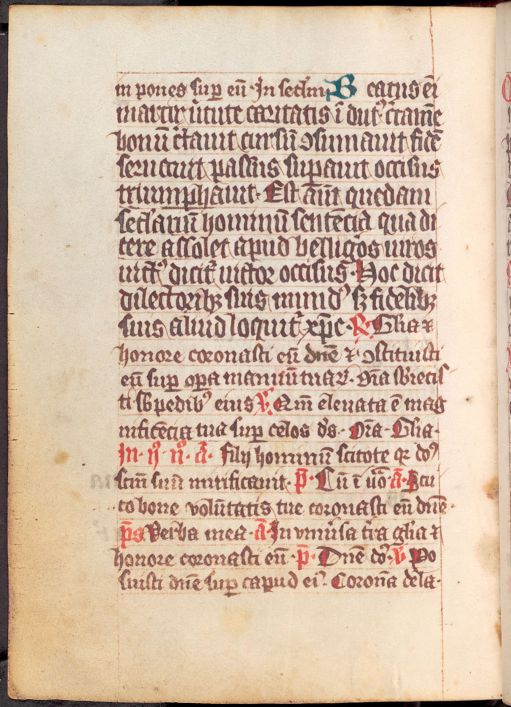 in pones sup eū · In seclm B eatus em̄
martir ūtute caritatis ī dut᷒ c̄tamīe
bonū c̄tauit cursū ꝯsumauit fidē
seruauit passus supauit occisus
triumphauit · Est aūt quedam
sēclarium hominū sentencia qua di
cere assolet apud bellicos uiros
uict᷒ dicit᷒ uictor occisus · Hoc dicit
dilectoribꝫ suis mund᷒ sꝫ fidelibꝫ
suis aliud loquit᷒ xp̄c · ℟ Gl̄ia ⁊
honore coronasti eū dn̄e ⁊ ꝯstituisti
eū sup opa manuū tuaꝝ · Oīa sb̄iecis
ti sb̄ pedibꝰ eius ℣ Qm̄ eleuata ē mag
nificēcia tua sup celos d̄s · Oīa · Gl̄ia ·
In · ijͦ · nͦ · a᷒ · Filij hominū scitote qꝛ dn̄s
scm̄ suū mirificauit · p̄ · Cū ī uō · a᷒ · Scu
to bone volūtatis tue coronasti eū dn̄e ·
p̄s Verba mea · a᷒ · In vniūsa t̄ra gl̄ia ⁊
honore coronasti eū · p̄ · Dn̄e dn̄s · ℣ Po
suisti dn̄e sup capud eiꝰ · Corona de la ·